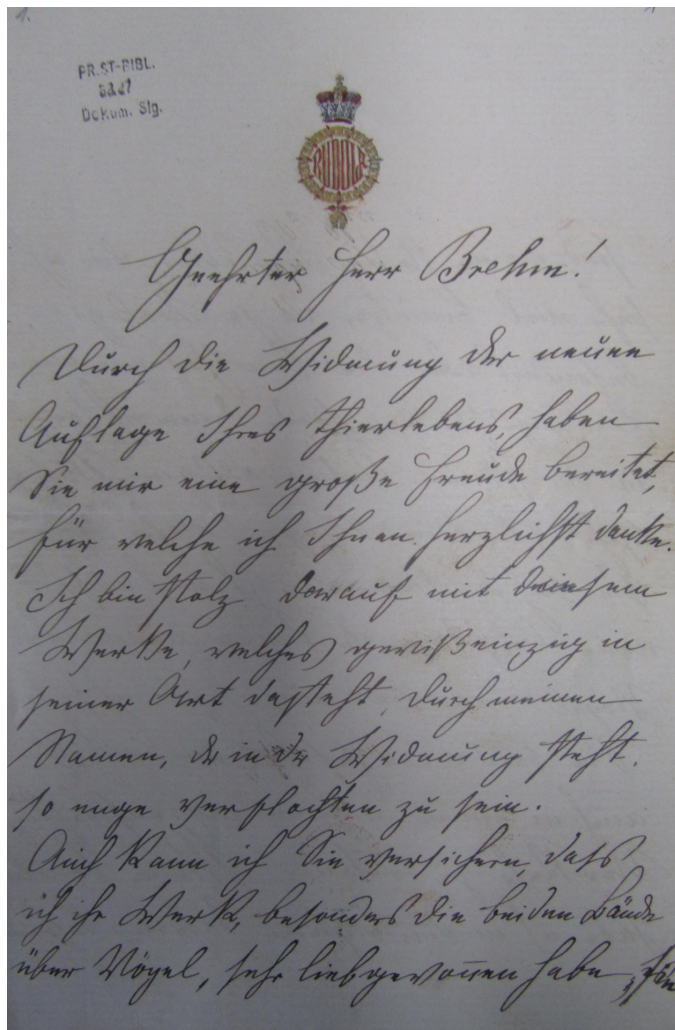 1.
PR.ST-BIBL.
Dokum. Slg.
RUDOLF
Geehrter Herr Brehm!
Durch die Widmung der neuen
Auflage Ihres Thierlebens, haben
Sie mir eine große Freude bereitet,
für welche ich Ihnen herzlichst danke.
Ich bin stolz darauf mit diesem
Werke, welches gewiß einzig in
seiner Art dasteht, durch meinen
Namen, der in der Widmung steht,
so enge verflochten zu sein.
Auch kann ich Sie versichern, dass
ich ihr Werk, besonders die beiden Bände
über Vögel, sehr liebgewonnen habe,